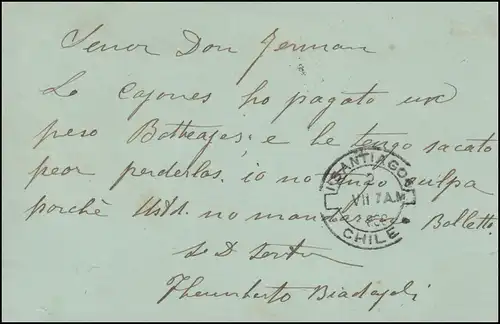 Senor Don German
Lo Cajones ho pagato un
peso Botteages e he tengo sacato
peor perderlos. io no tengo culpa
porchè Usts. no mandaron Bolletto
S. D.
Humberto Biadajoli
SANTIAGO
2
VII 7 A.M
CHILE